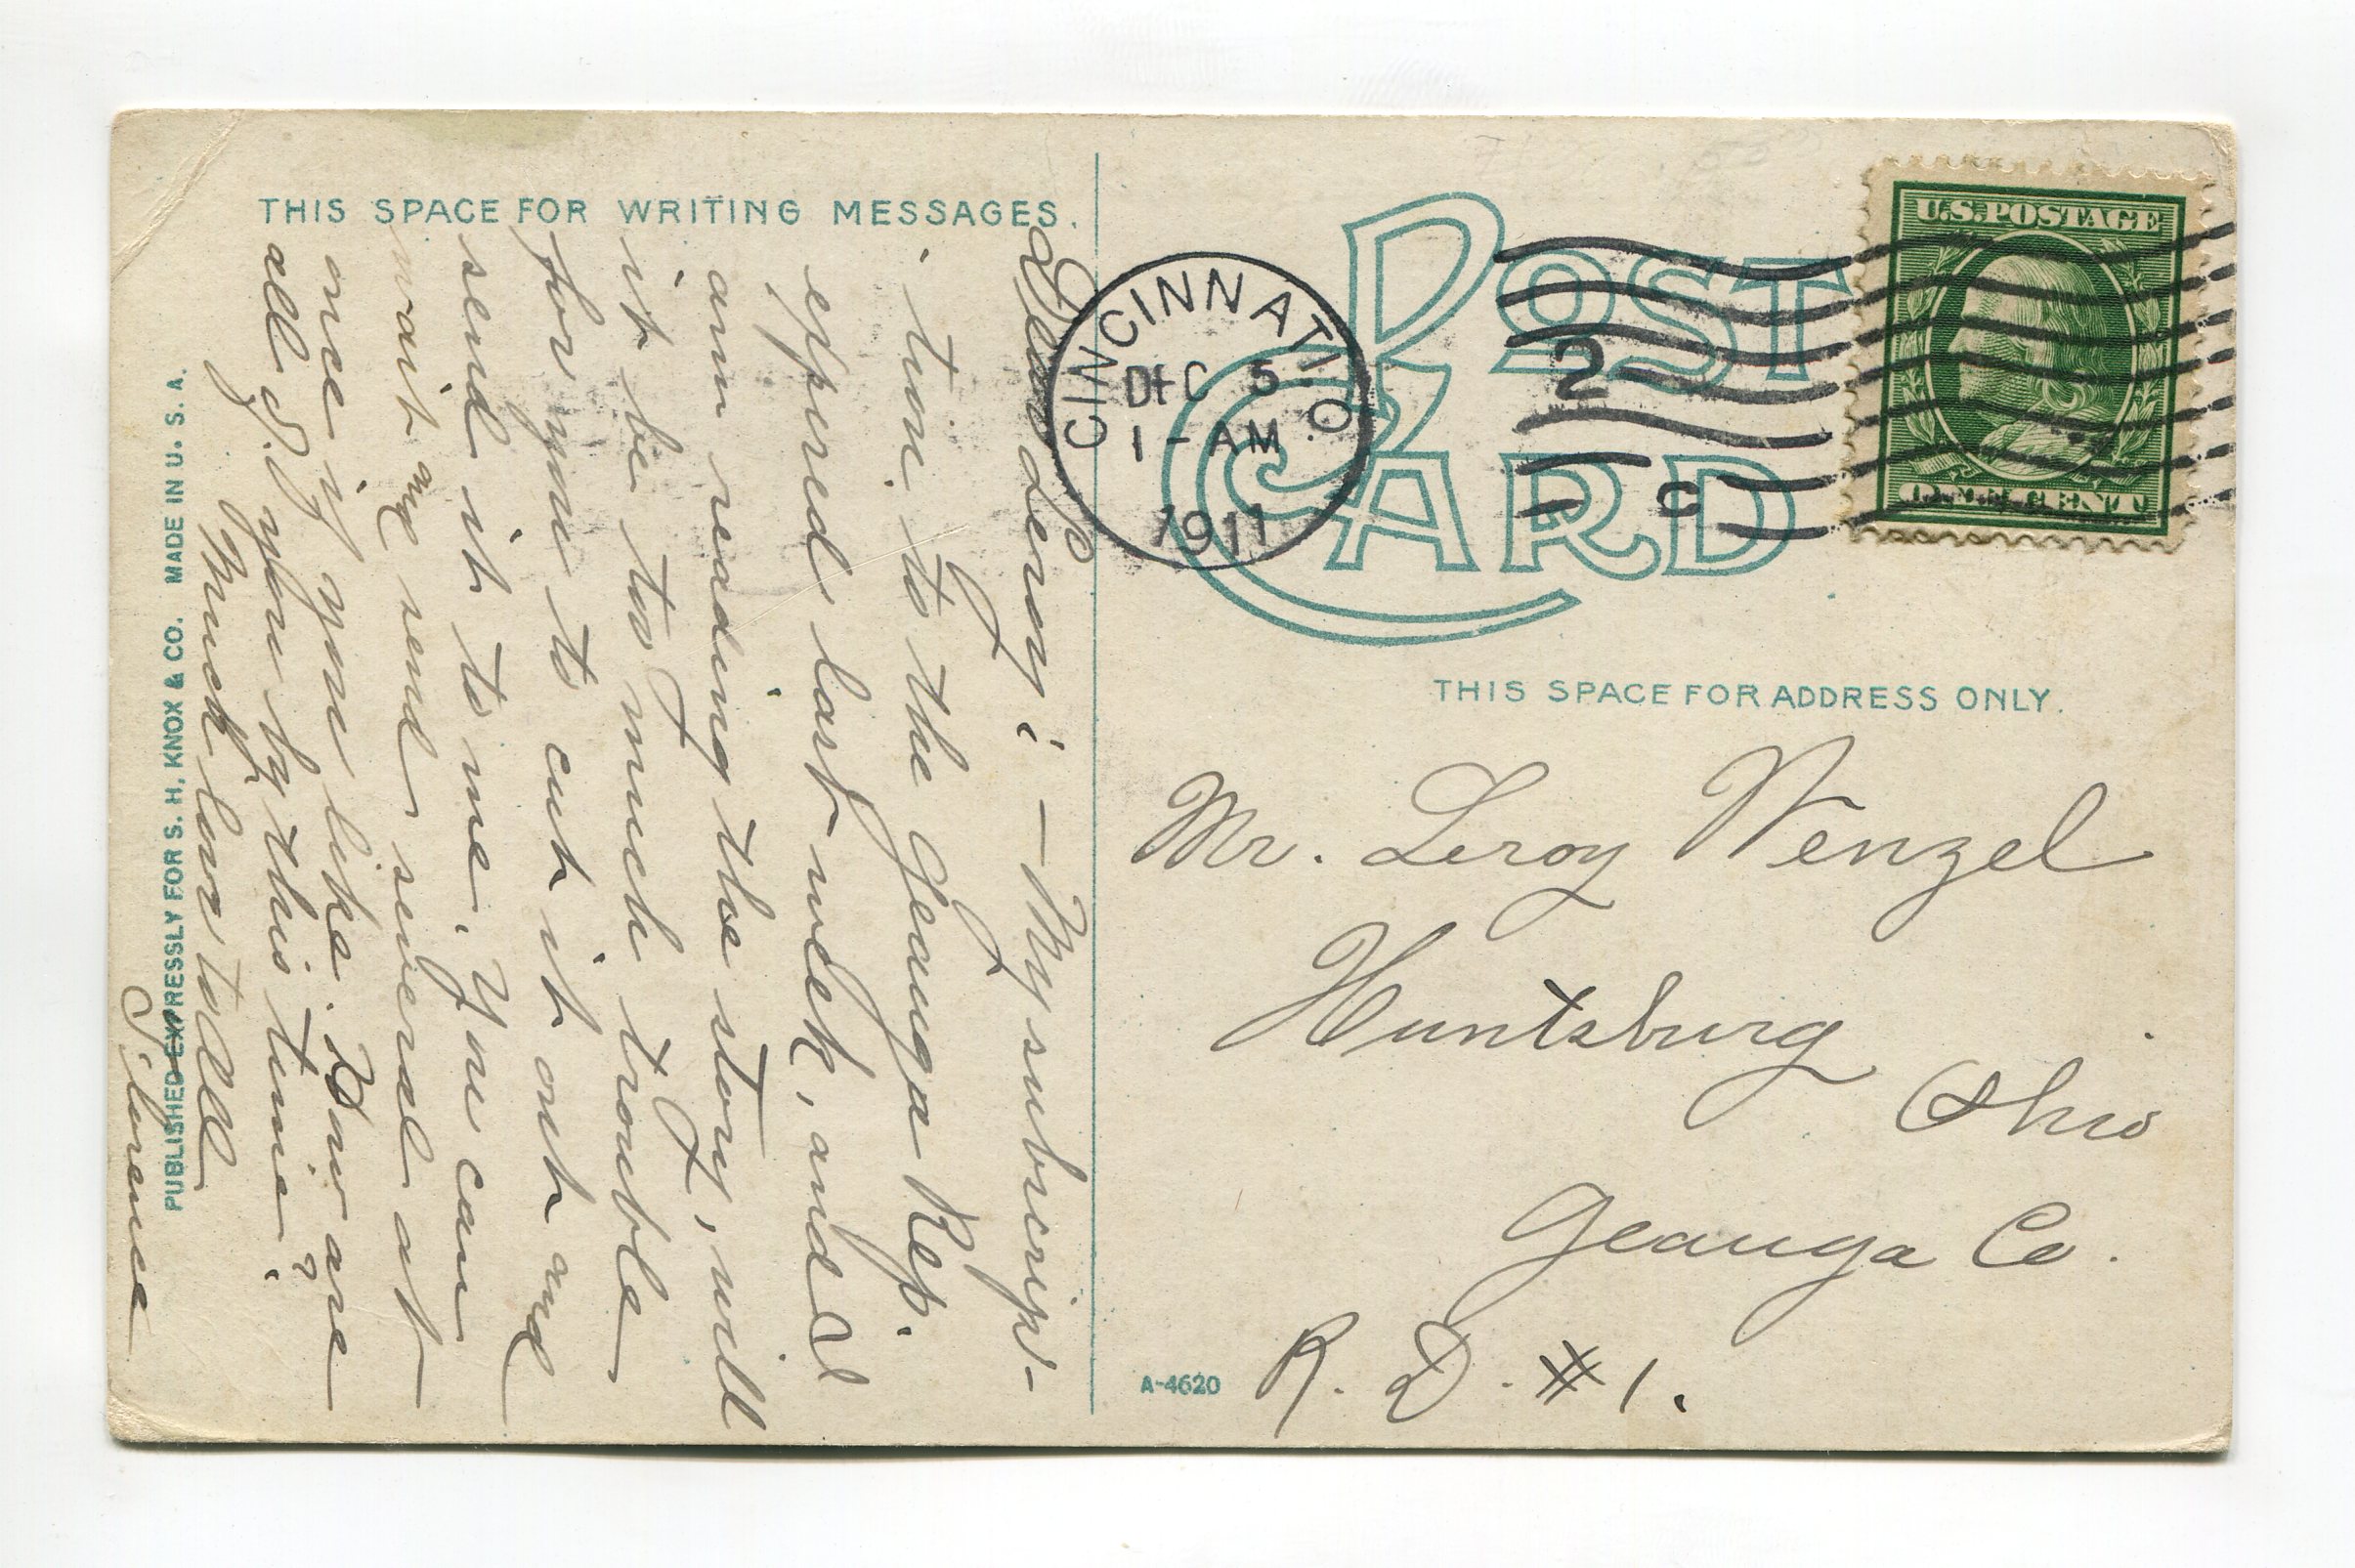 THIS SPACE FOR WRITING MESSAGES.
Dear Leroy: — My subscrip-
tion to the Geauga Rep.
expired last week, and I
am reading the story, will
it be too much trouble
for you to cut it out and
send it to me. You can
wait and send several at
once if you like. How are
all of you by this time?
Much love to all
Florence
PUBLISHED EXPRESSLY FOR S. H. KNOX & CO. MADE IN U. S. A.
POST CARD
CINCINNATI, O.
DEC 5
1 - AM
1911
2
C
U.S. POSTAGE
ONE CENT
THIS SPACE FOR ADDRESS ONLY.
Mr. Leroy Wenzel
Huntsburg
Ohio
Geauga Co.
R. D. #1.
A-4620